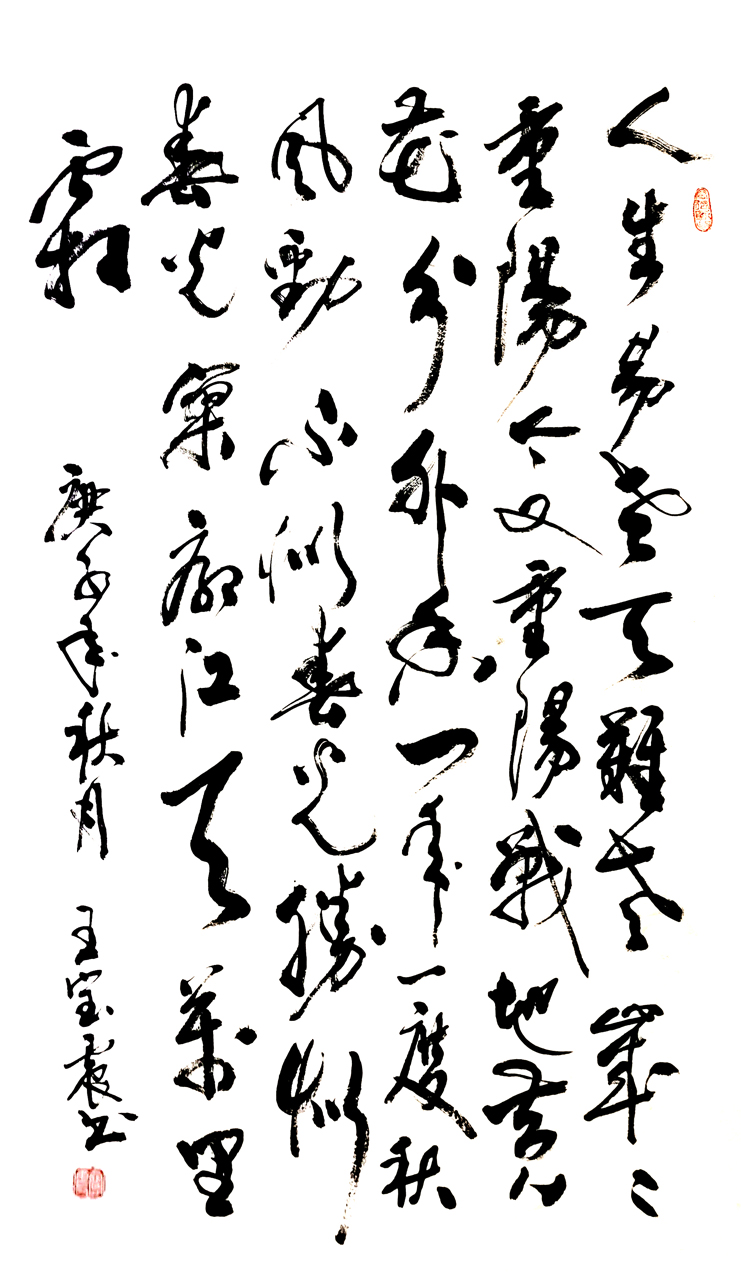 人生易老天難老歲々
重陽今又重陽戰地黄
花分外香一年一度秋
風勁不似春光勝似
春光寥廓江天萬里
霜
庚子年秋月 王宝震书